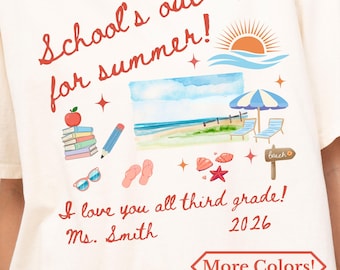 School's out
for summer!
Beach
I love you all third grade!
Ms. Smith 2026
More Colors!